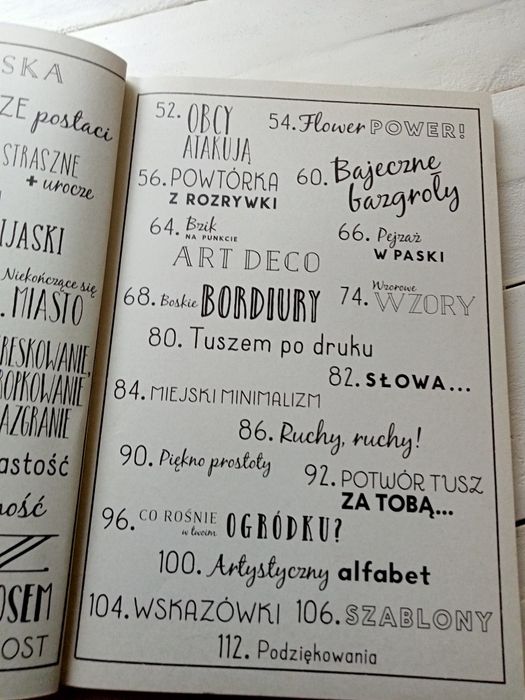 SKA
ZE postaci
STRASZNE
+ urocze
IJASKI
Niekończące się
. MIASTO
RESKOWANIE,
ROPKOWANIE
AZGRANIE
astość
ność
OSEM
OST
52. OBCY
ATAKUJĄ
54. Flower POWER!
56. POWTÓRKA
Z ROZRYWKI
60. Bajeczne
bazgroły
64. Bzik
NA PUNKCIE
ART DECO
66. Pejzaż
W PASKI
68. Boskie BORDIURY
74. Wzorowe
WZORY
80. Tuszem po druku
82. SŁOWA...
84. MIEJSKI MINIMALIZM
86. Ruchy, ruchy!
90. Piękno prostoty
92. POTWÓR TUSZ
ZA TOBĄ...
96. CO ROŚNIE
w twoim OGRÓDKU?
100. Artystyczny alfabet
104. WSKAZÓWKI 106. SZABLONY
112. Podziękowania